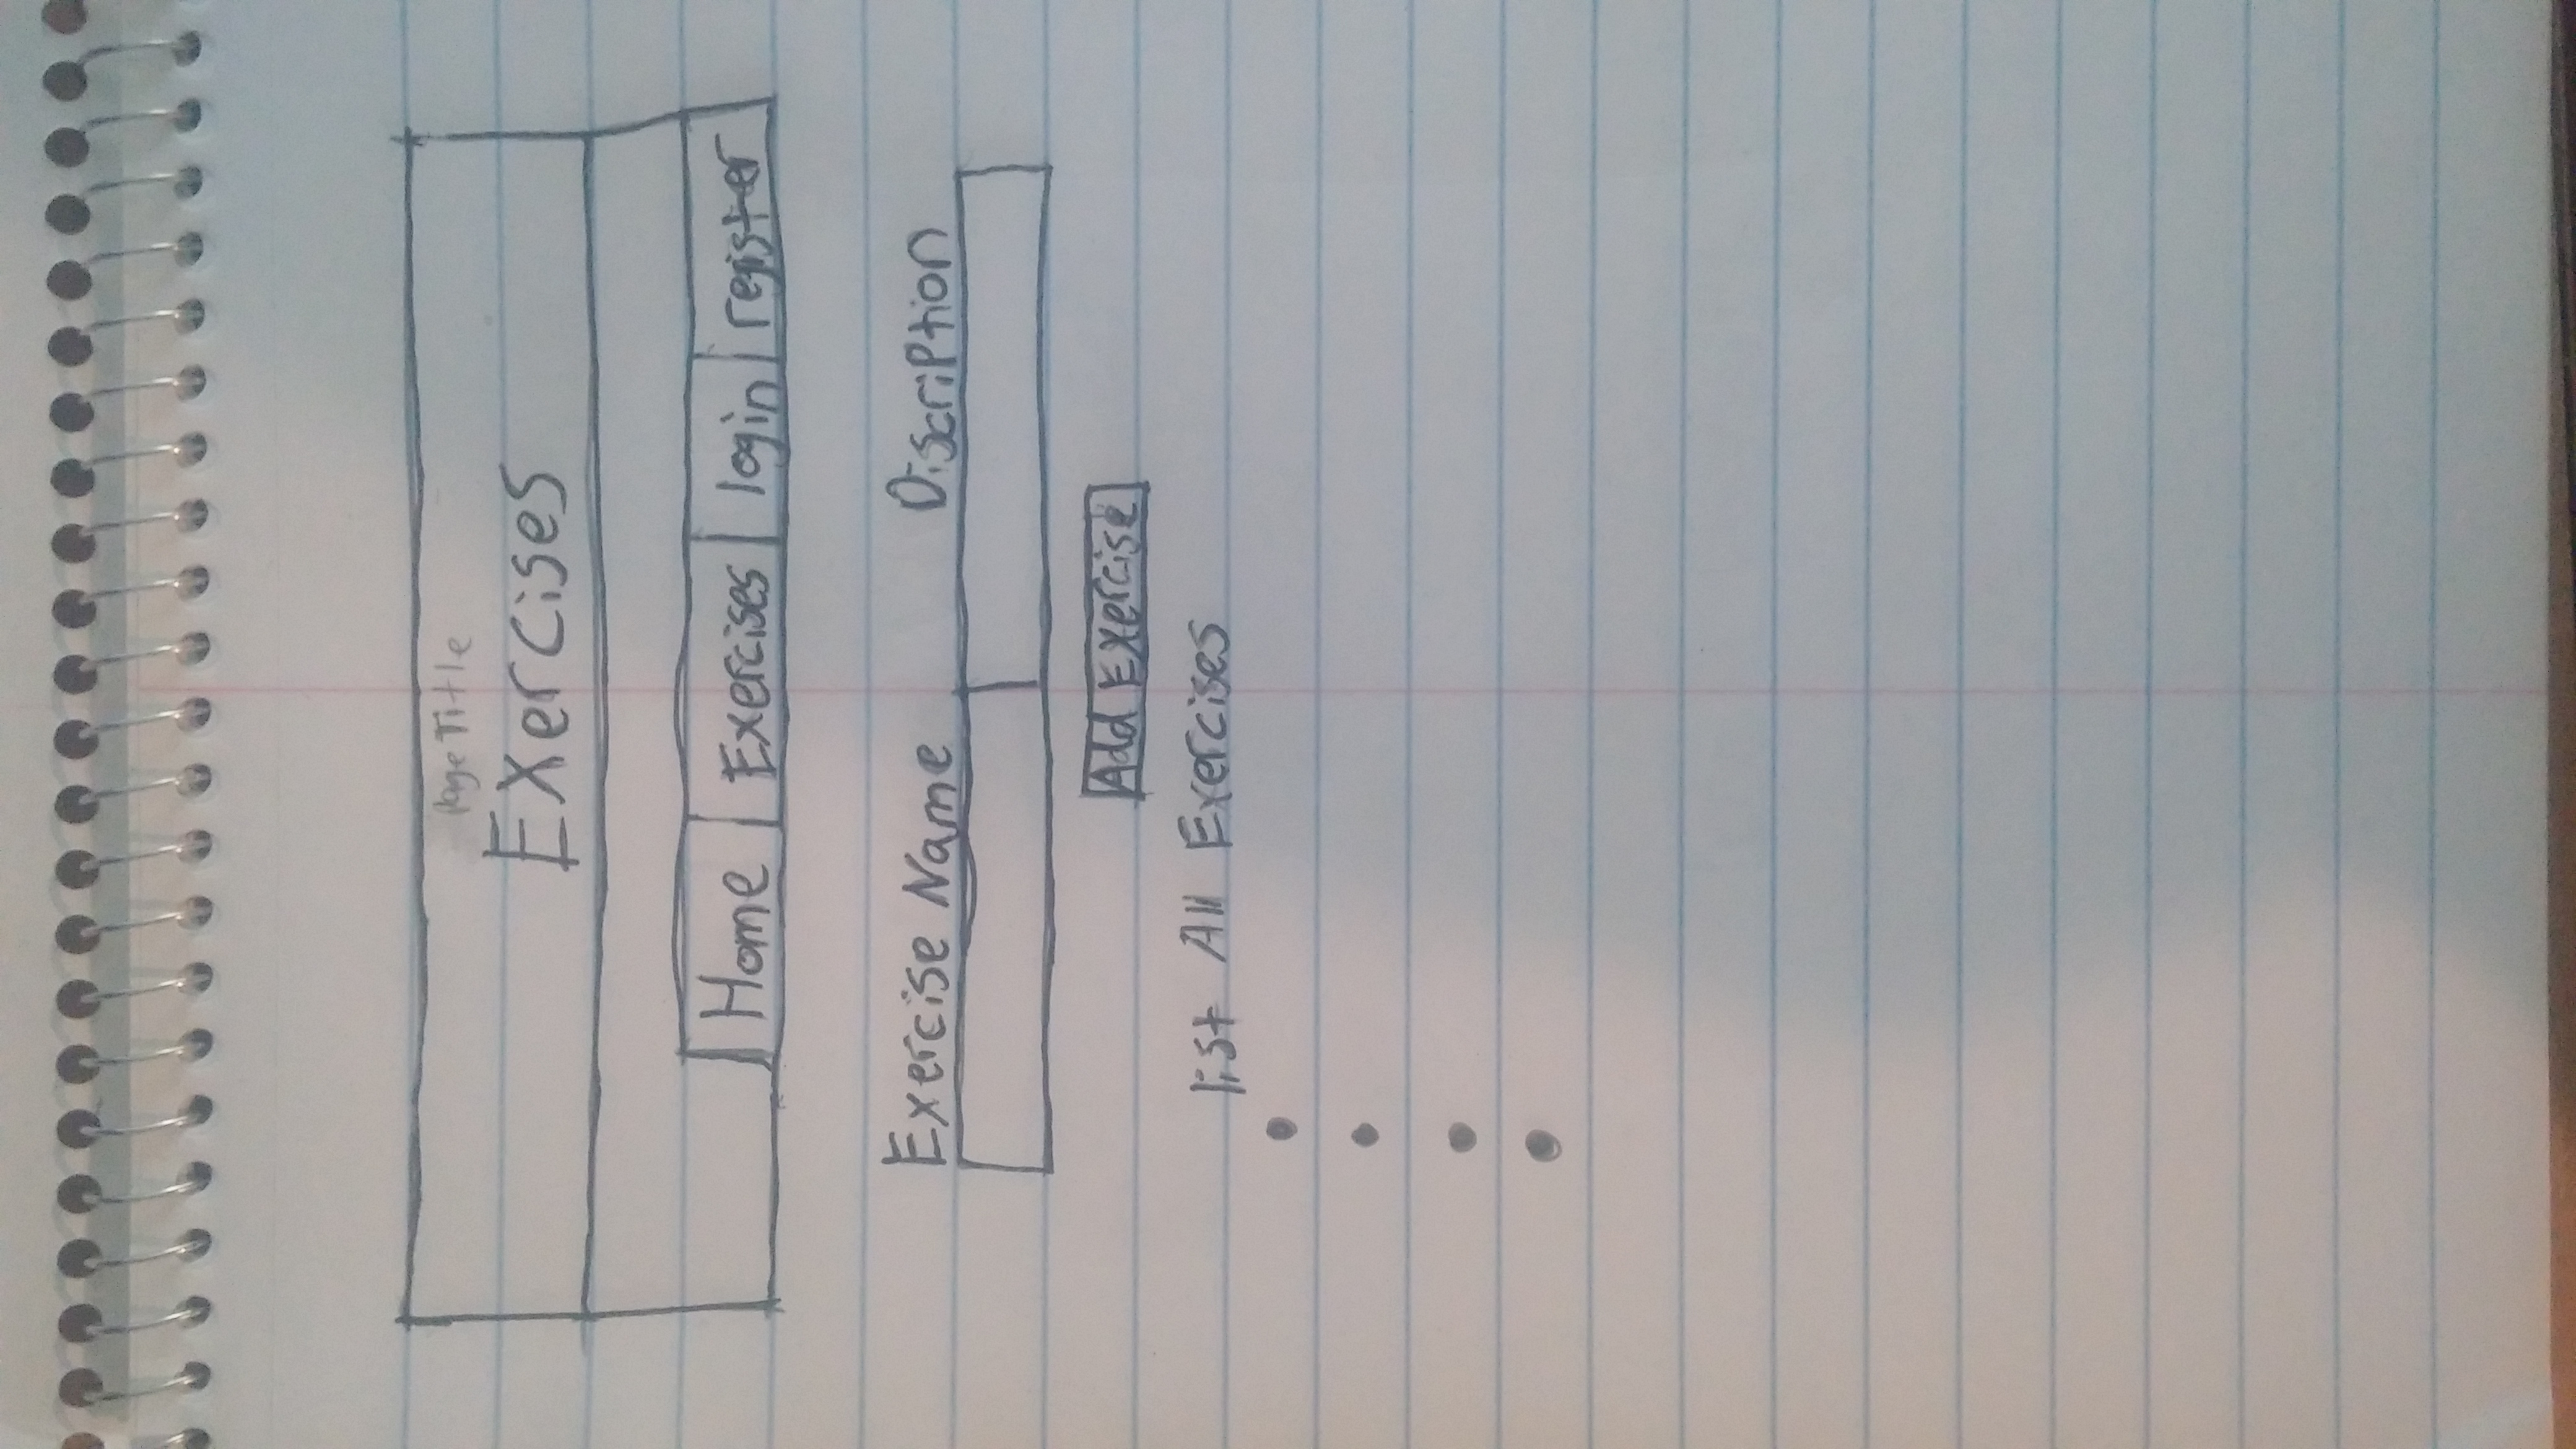 Page Title
Exercises
Home Exercises login register
Exercise Name Discription
Add Exercise
list All Exercises